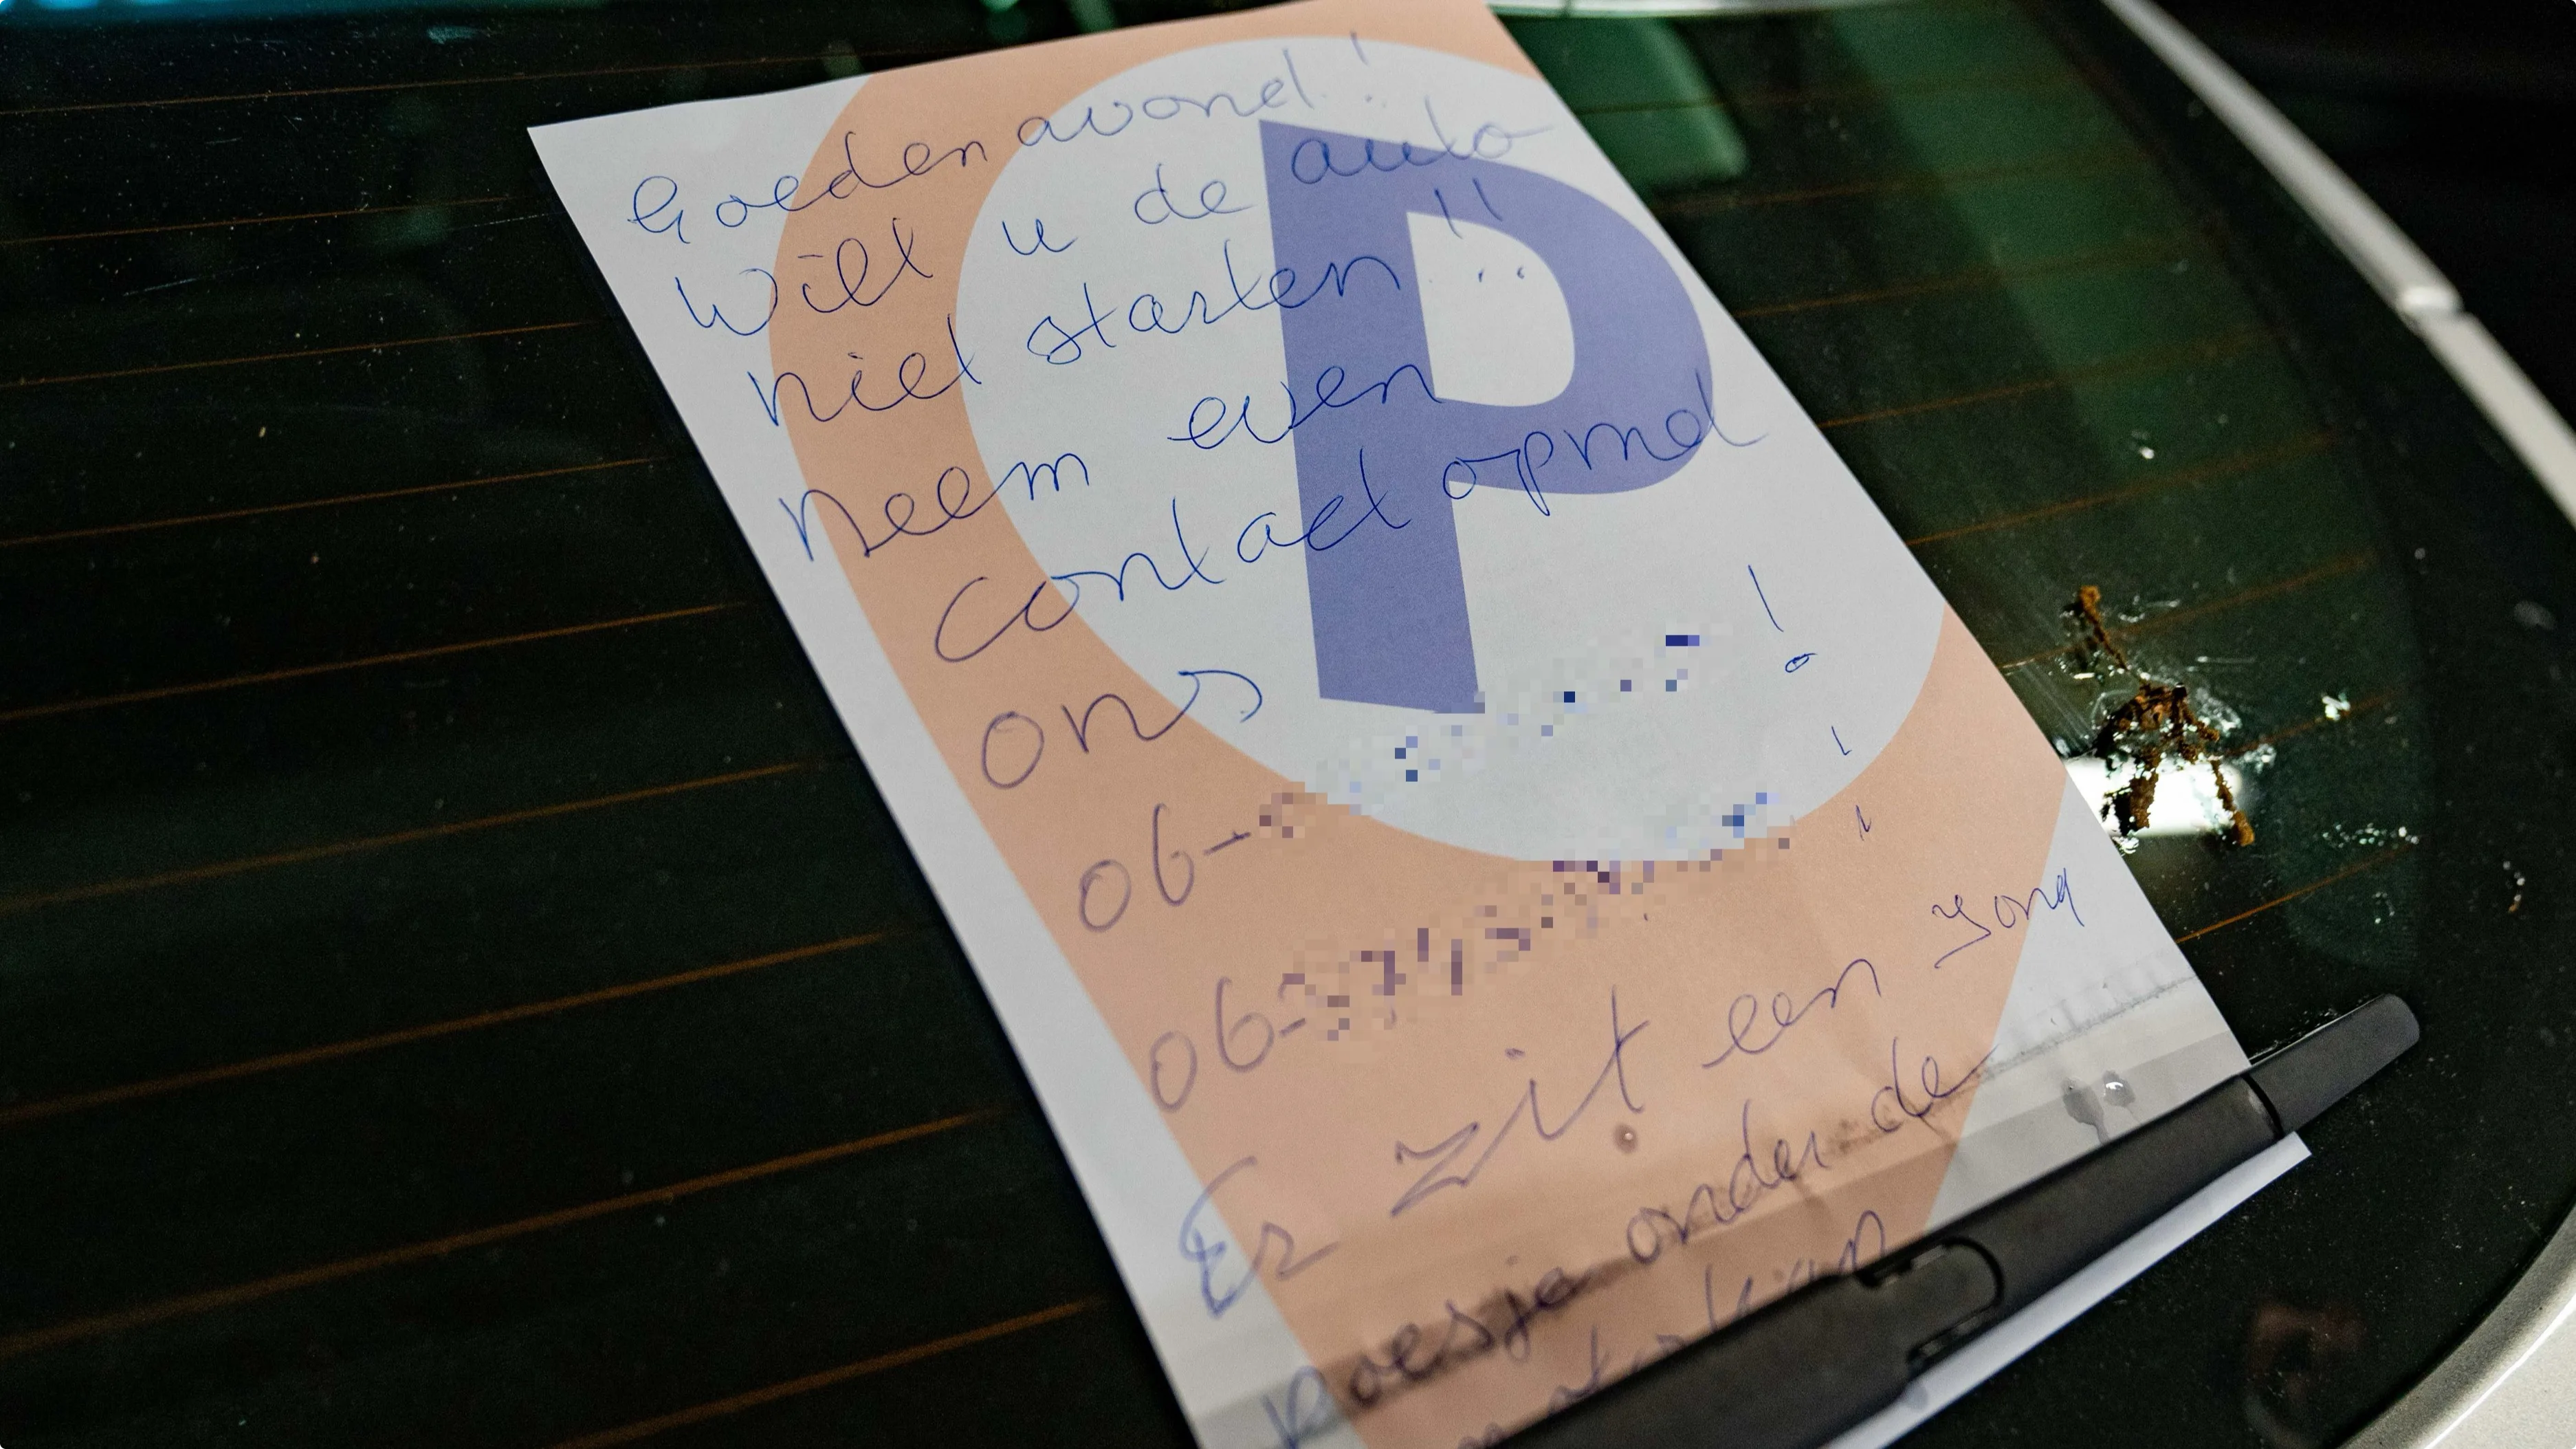 Goedenavond!
Wilt u de auto
niet starten!!
Neem even
contact op met
ons !
06-
06-
Er zit een jong
poesje onder de
P